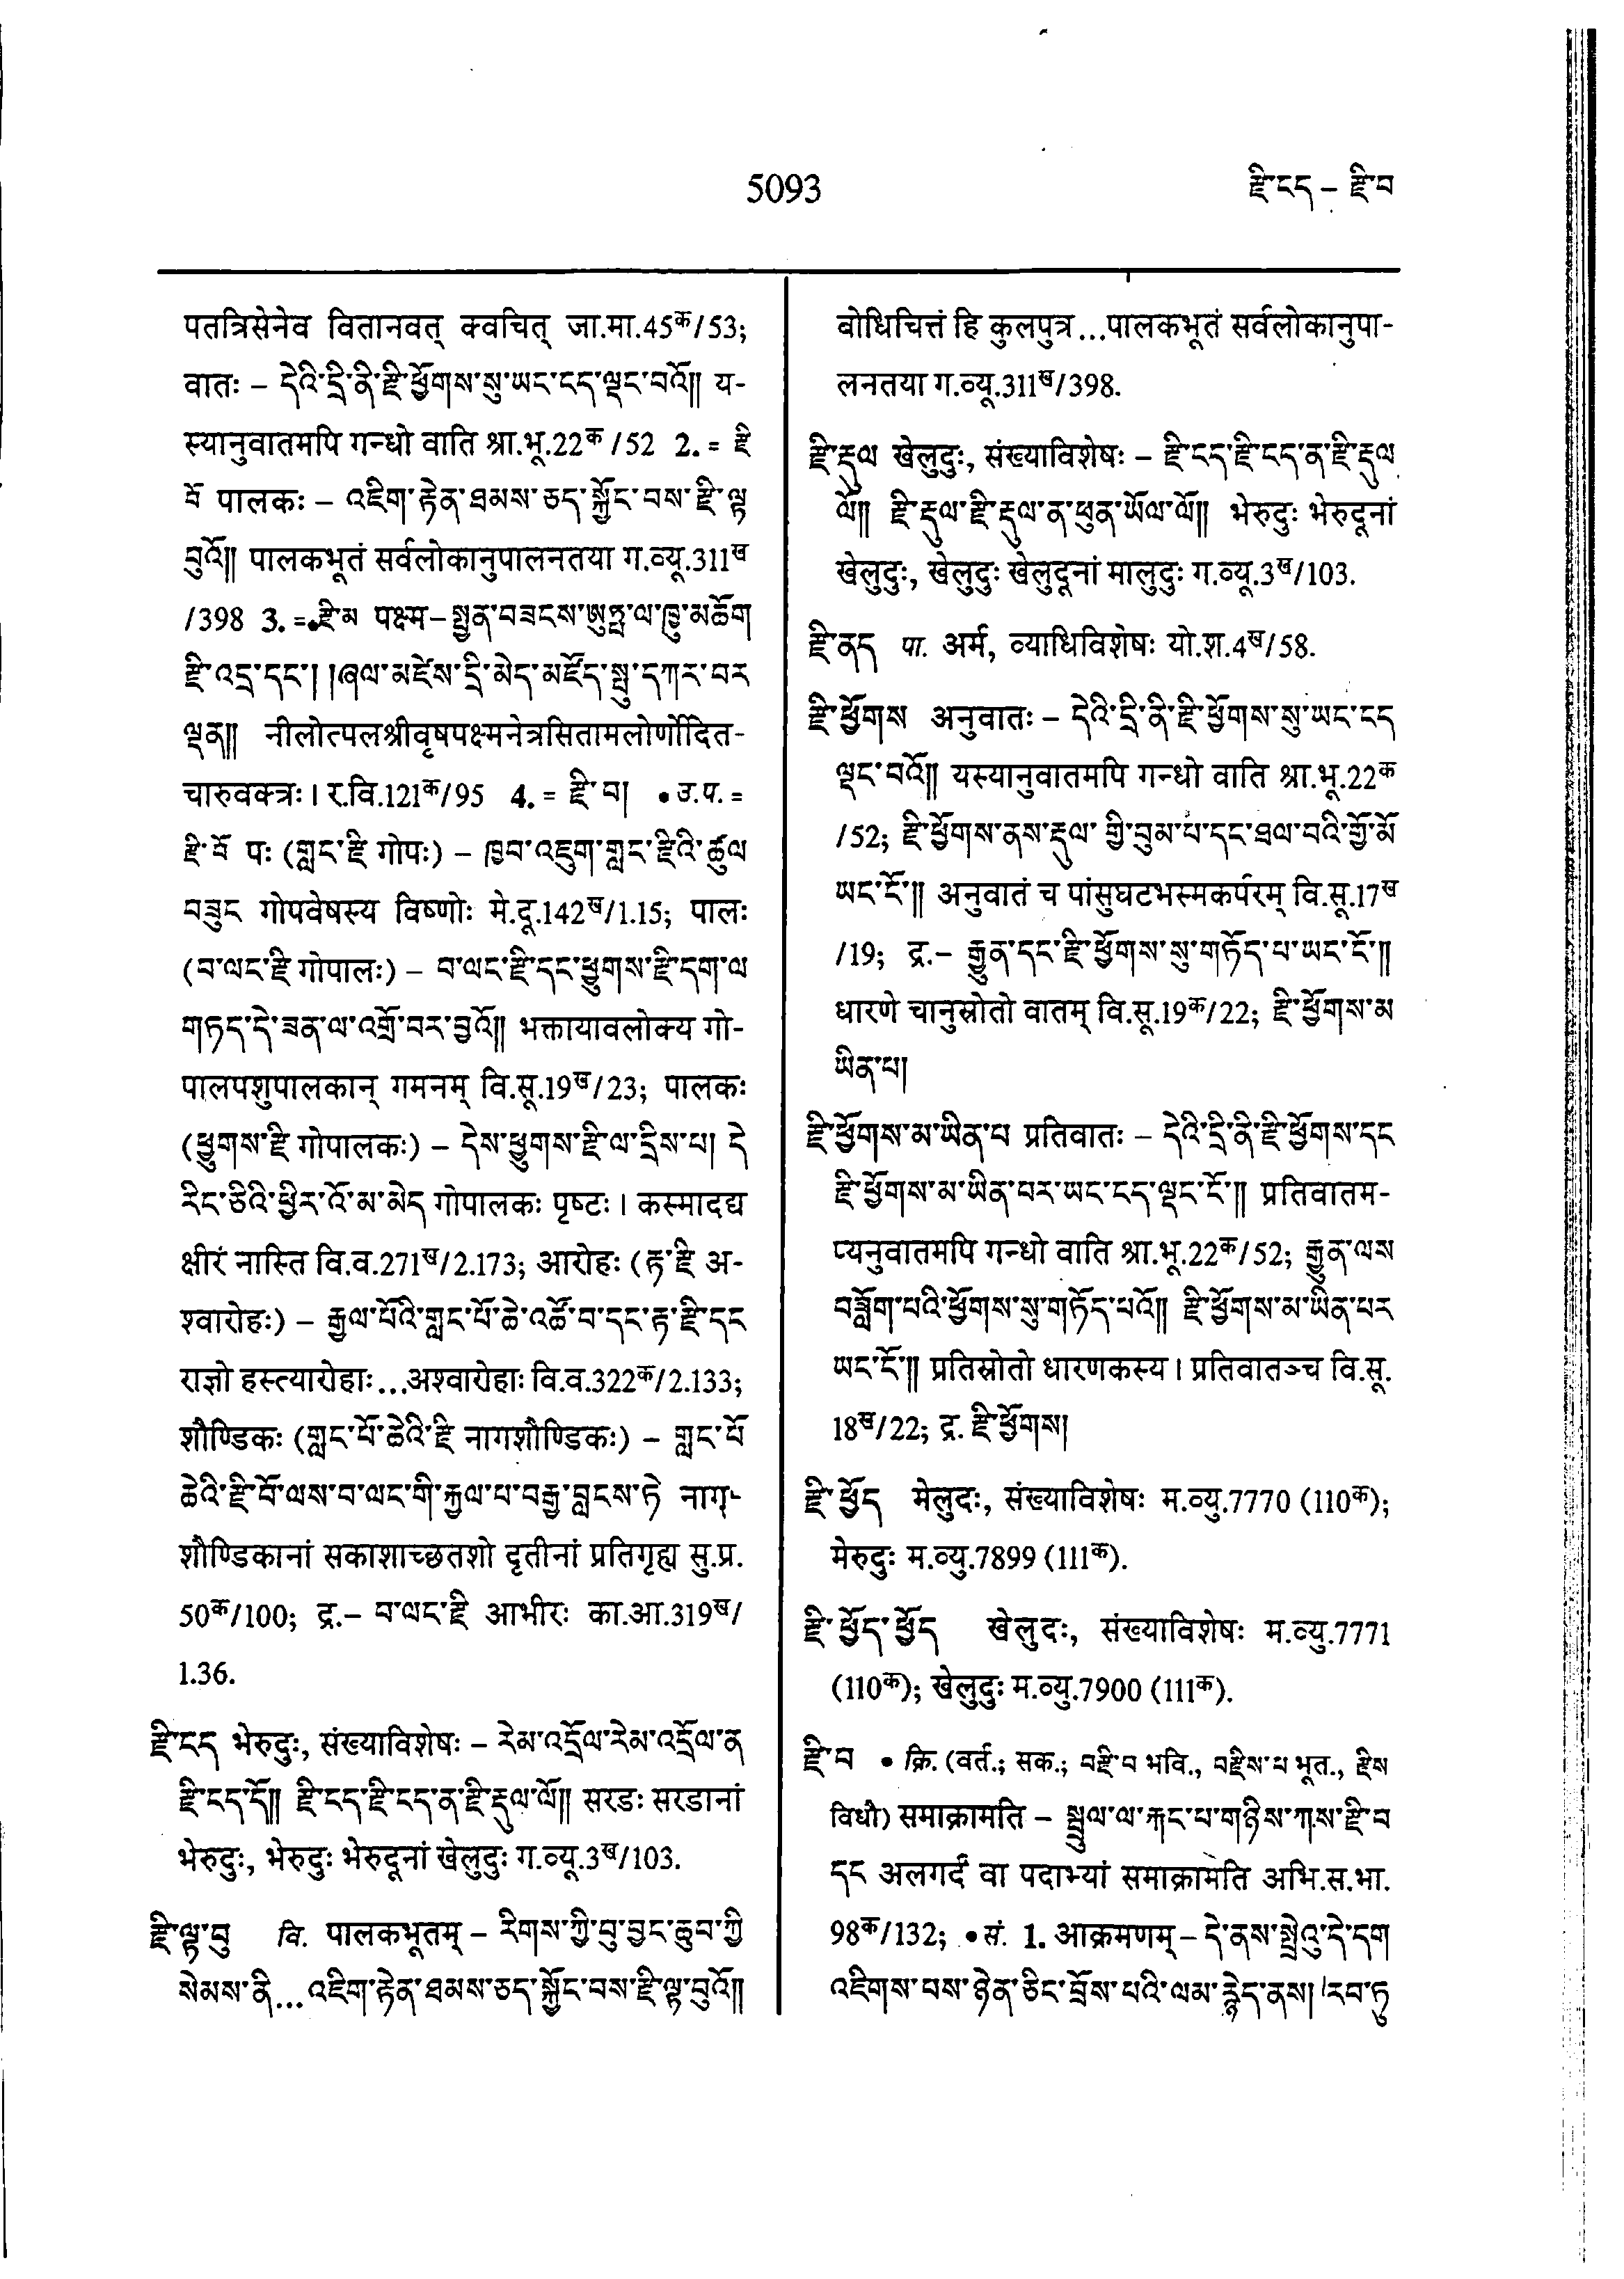 5093
རྫི་ངད – རྫི་བ
पतत्रिसेनेव वितानवत् क्वचित् जा.मा.45क/53;
वातः – དེའི་དྲི་ནི་རྫི་ཕྱོགས་སུ་ཡང་ངད་ལྡང་བའོ༎ य-
स्यानुवातमपि गन्धो वाति श्रा.भू.22क/52 2. = རྫི
བོ पालकः – འཇིག་རྟེན་ཐམས་ཅད་སྐྱོང་བས་རྫི་ལྟ
བུའོ༎ पालकभूतं सर्वलोकानुपालनतया ग.व्यू.311ख
/398 3. = རྫི་མ पक्ष्म – སྤྱན་བཟངས་ཨུཏྤལ་ཁྱུ་མཆོག
རྫི་འདྲ་དང་། །ཞལ་མཛེས་དྲི་མེད་མཛོད་སྤུ་དཀར་བར
ལྡན༎ नीलोत्पलश्रीवृषपक्ष्मनेत्रसितामलोर्णोदित-
चारुवक्त्रः। र.वि.121क/95 4. = རྫི་བ། • उ.प. =
རྫི་བོ पः (གླང་རྫི गोपः) – ཁྱབ་འཇུག་གླང་རྫིའི་ཚུལ
བཟུང गोपवेषस्य विष्णोः मे.दू.142ख/1.15; पालः
(བ་ལང་རྫི गोपालः) – བ་ལང་རྫི་དང་ཕྱུགས་རྫི་དག་ལ
གཏད་དེ་ཟན་ལ་འགྲོ་བར་བྱའོ༎ भक्तायावलोक्य गो-
पालपशुपालकान् गमनम् वि.सू.19ख/23; पालकः
(ཕྱུགས་རྫི गोपालकः) – དེས་ཕྱུགས་རྫི་ལ་དྲིས་པ། དེ
རིང་ཅིའི་ཕྱིར་འོ་མ་མེད गोपालकः पृष्टः। कस्मादद्य
क्षीरं नास्ति वि.व.271ख/2.173; आरोहः (རྟ་རྫི अ-
श्वारोहः) – རྒྱལ་པོའི་གླང་པོ་ཆེ་འཚོ་བ་དང་རྟ་རྫི་དང
राज्ञो हस्त्यारोहाः...अश्वारोहाः वि.व.322क/2.133;
शौण्डिकः (གླང་པོ་ཆེའི་རྫི नागशौण्डिकः) – གླང་པོ
ཆེའི་རྫི་བོ་ལས་བ་ལང་གི་རྐྱལ་པ་བརྒྱ་བླངས་ཏེ नाग-
शौण्डिकानां सकाशाच्छतशो दृतीनां प्रतिगृह्य सु.प्र.
50क/100; द्र.– བ་ལང་རྫི आभीरः का.आ.319ख/
1.36.
རྫི་ངད भेरुदुः, संख्याविशेषः – རེམ་འདྲོལ་རེམ་འདྲོལ་ན
རྫི་ངད་དོ༎ རྫི་ངད་རྫི་ངད་ན་རྫི་རྡུལ་ལོ༎ सरडः सरडानां
भेरुदुः, भेरुदुः भेरुदूनां खेलुदुः ग.व्यू.3ख/103.
རྫི་ལྟ་བུ वि. पालकभूतम् – རིགས་ཀྱི་བུ་བྱང་ཆུབ་ཀྱི
སེམས་ནི...འཇིག་རྟེན་ཐམས་ཅད་སྐྱོང་བས་རྫི་ལྟ་བུའོ༎
बोधिचित्तं हि कुलपुत्र...पालकभूतं सर्वलोकानुपा-
लनतया ग.व्यू.311ख/398.
རྫི་རྡུལ खेलुदुः, संख्याविशेषः – རྫི་ངད་རྫི་ངད་ན་རྫི་རྡུལ
ལོ༎ རྫི་རྡུལ་རྫི་རྡུལ་ན་ཕུན་ཡོལ་ལོ༎ भेरुदुः भेरुदूनां
खेलुदुः, खेलुदुः खेलुदूनां मालुदुः ग.व्यू.3ख/103.
རྫི་ནད पा. अर्म, व्याधिविशेषः यो.श.4ख/58.
རྫི་ཕྱོགས अनुवातः – དེའི་དྲི་ནི་རྫི་ཕྱོགས་སུ་ཡང་ངད
ལྡང་བའོ༎ यस्यानुवातमपि गन्धो वाति श्रा.भू.22क
/52; རྫི་ཕྱོགས་ནས་རྡུལ་གྱི་བུམ་པ་དང་ཐལ་བའི་གྱོ་མོ
ཡང་ངོ་༎ अनुवातं च पांसुघटभस्मकर्परम् वि.सू.17ख
/19; द्र.– རྒྱུན་དང་རྫི་ཕྱོགས་སུ་གཏོད་པ་ཡང་ངོ་༎
धारणे चानुस्रोतो वातम् वि.सू.19क/22; རྫི་ཕྱོགས་མ
ཡིན་པ།
རྫི་ཕྱོགས་མ་ཡིན་པ प्रतिवातः – དེའི་དྲི་ནི་རྫི་ཕྱོགས་དང
རྫི་ཕྱོགས་མ་ཡིན་པར་ཡང་ངད་ལྡང་ངོ་༎ प्रतिवातम-
प्यनुवातमपि गन्धो वाति श्रा.भू.22क/52; རྒྱུན་ལས
བཟློག་པའི་ཕྱོགས་སུ་གཏོད་པའོ༎ རྫི་ཕྱོགས་མ་ཡིན་པར
ཡང་ངོ་༎ प्रतिस्रोतो धारणकस्य। प्रतिवातञ्च वि.सू.
18ख/22; द्र. རྫི་ཕྱོགས།
རྫི་ཕྱོད मेलुदः, संख्याविशेषः म.व्यु.7770 (110क);
मेरुदुः म.व्यु.7899 (111क).
རྫི་ཕྱོད་ཕྱོད खेलुदः, संख्याविशेषः म.व्यु.7771
(110क); खेलुदुः म.व्यु.7900 (111क).
རྫི་བ • क्रि. (वर्त.; सक.; བརྫི་བ भवि., བརྫིས་པ भूत., རྫིས
विधौ) समाक्रामति – སྦྲུལ་ལ་རྐང་པ་གཉིས་ཀས་རྫི་བ
དང अलगर्दं वा पदाभ्यां समाक्रामेति अभि.स.भा.
98क/132; • सं. 1. आक्रमणम् – དེ་ནས་སྤྲེའུ་དེ་དག
འཇིགས་པས་ཉེན་ཅིང་བྲོས་པའི་ལམ་རྙེད་ནས། །རབ་ཏུ